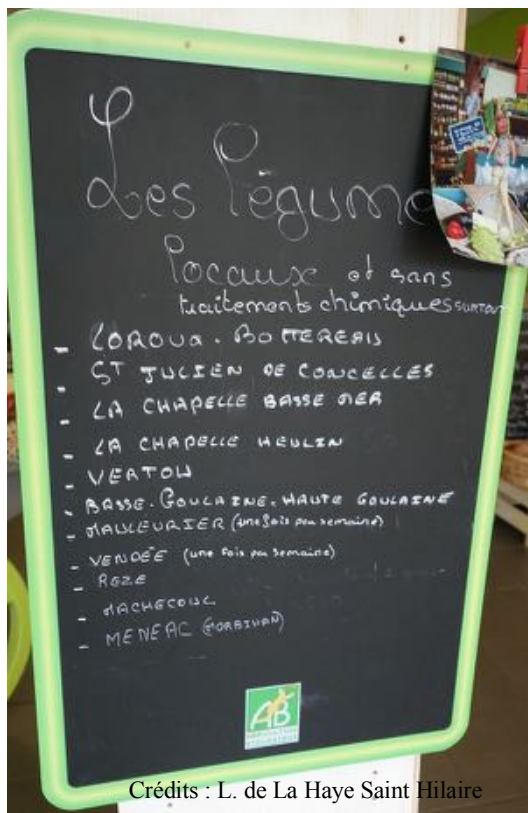 Les légume
locaux et sans
traitements chimiques SURTOUT
- LOROUX-BOTTEREAU
- ST JULIEN DE CONCELLES
- LA CHAPELLE BASSE MER
- LA CHAPELLE HEULIN
- VERTOU
- BASSE-GOULAINE. HAUTE GOULAINE
- MAULEVRIER (une fois par semaine)
- VENDÉE (une fois par semaine)
- REZE
- MACHECOUL
- MENEAC (MORBIHAN)
AB
AGRICULTURE
BIOLOGIQUE
Crédits : L. de La Haye Saint Hilaire